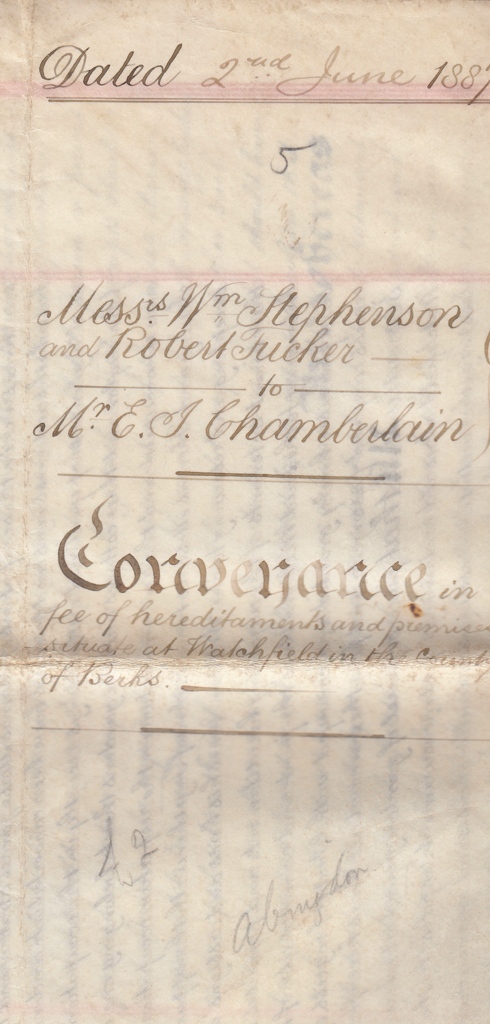 Dated 2nd June 1887
5
Messrs. Wm Stephenson
and Robert Tucker
to
Mr. E. J. Chamberlain
Conveyance in
fee of hereditaments and premises
situate at Watchfield in the County
of Berks.
Abingdon